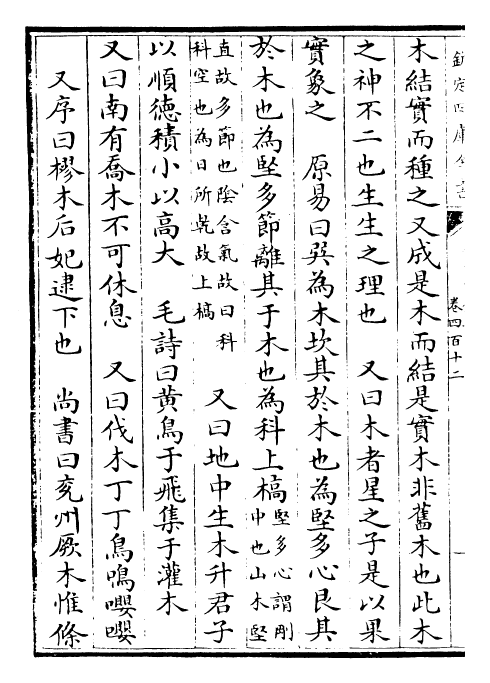 欽定四庫全書
卷四百十二
木結實而種之又成是木而結是實木非舊木也此木
之神不二也生生之理也　又曰木者星之子是以果
實象之　原易曰巽為木坎其於木也為堅多心艮其
於木也為堅多節離其于木也為科上槁
堅多心謂剛
中也山木堅
直故多節也陰含氣故曰科
科空也為日所乾故上槁
又曰地中生木升君子
以順德積小以高大　毛詩曰黃鳥于飛集于灌木
又曰南有喬木不可休息　又曰伐木丁丁鳥鳴嚶嚶
又序曰樛木后妃逮下也　尚書曰兖州厥木惟條